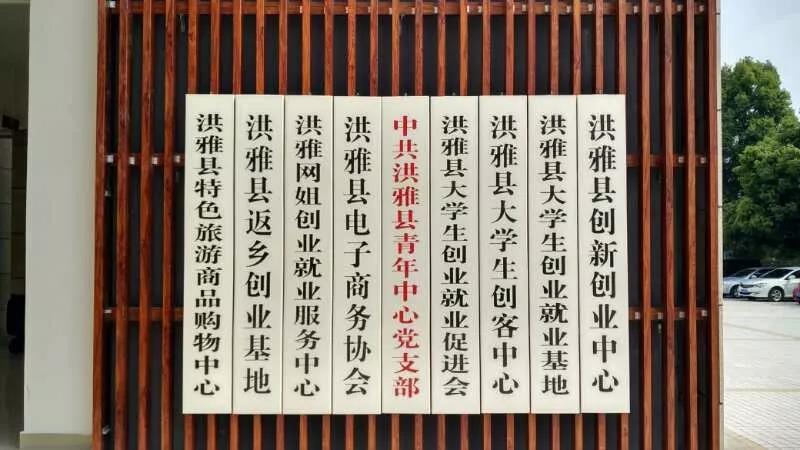 洪雅县特色旅游商品购物中心
洪雅县返乡创业基地
洪雅网姐创业就业服务中心
洪雅县电子商务协会
中共洪雅县青年中心党支部
洪雅县大学生创业就业促进会
洪雅县大学生创客中心
洪雅县大学生创业就业基地
洪雅县创新创业中心